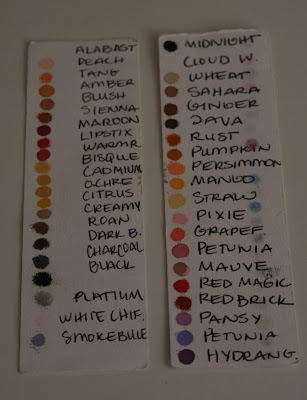 ALABAST
PEACH
TANG
AMBER
BLUSH
SIENNA
MAROON
LIPSTIX
WARMR
BISQUE
CADMIUM
OCHRE
CITRUS
CREAMY
ROAN
DARK B.
CHARCOAL
BLACK
PLATIUM
WHITE CHIF.
SMOKEBLUE
MIDNIGHT
CLOUD W.
WHEAT
SAHARA
GINGER
JAVA
RUST
PUMPKIN
PERSIMMON
MANGO
STRAW
PIXIE
GRAPEF
PETUNIA
MAUVE
RED MAGIC
RED BRICK
PANSY
PETUNIA
HYDRANG.